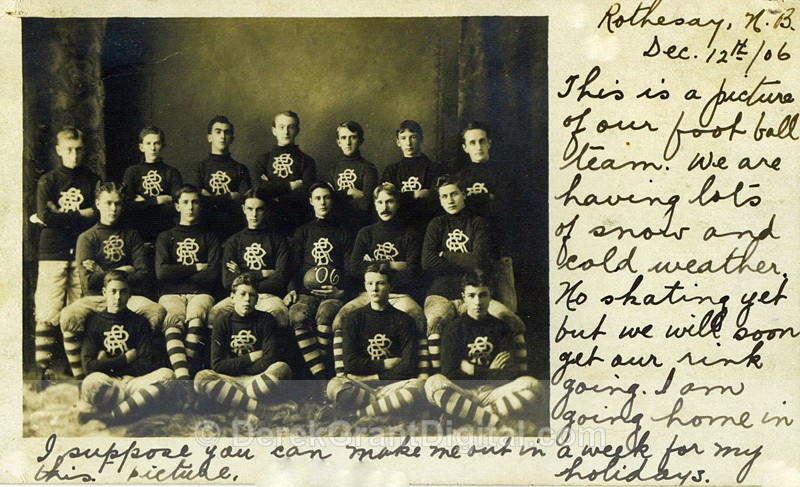 Rothesay, N.B.
Dec. 12th/06
This is a picture
of our foot ball
team. We are
having lots
of snow and
cold weather.
No skating yet
but we will soon
get our rink
going. I am
going home in
a week for my
holidays.
I suppose you can make me out in
this picture.
'06
© DerekGrantDigital.com